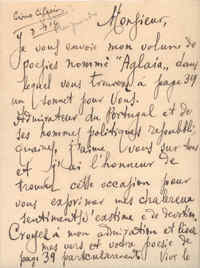 Monsieur,
Je vous envoie mon volume de
poésies nommé "Aglaia, dans
lequel vous trouverez à page 319
un sonnet pour Vous.
Admirateur du Portugal et de
ses hommes politiques républi-
quains, j'aime Vous sur tous
et j'ai l'honneur de
trouver cette occasion pour
vous exprimer mes chaleureux
sentiments d'estime et de devotion.
Croyez à mon admiration et lisez
mes vers et votre poésie de
page 319 particulièrement. Vive le